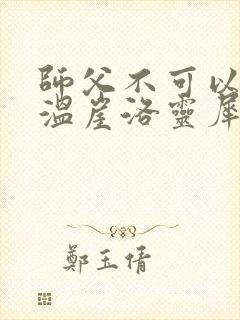 師父不可以
溫崖洛靈犀
鄭玉倩